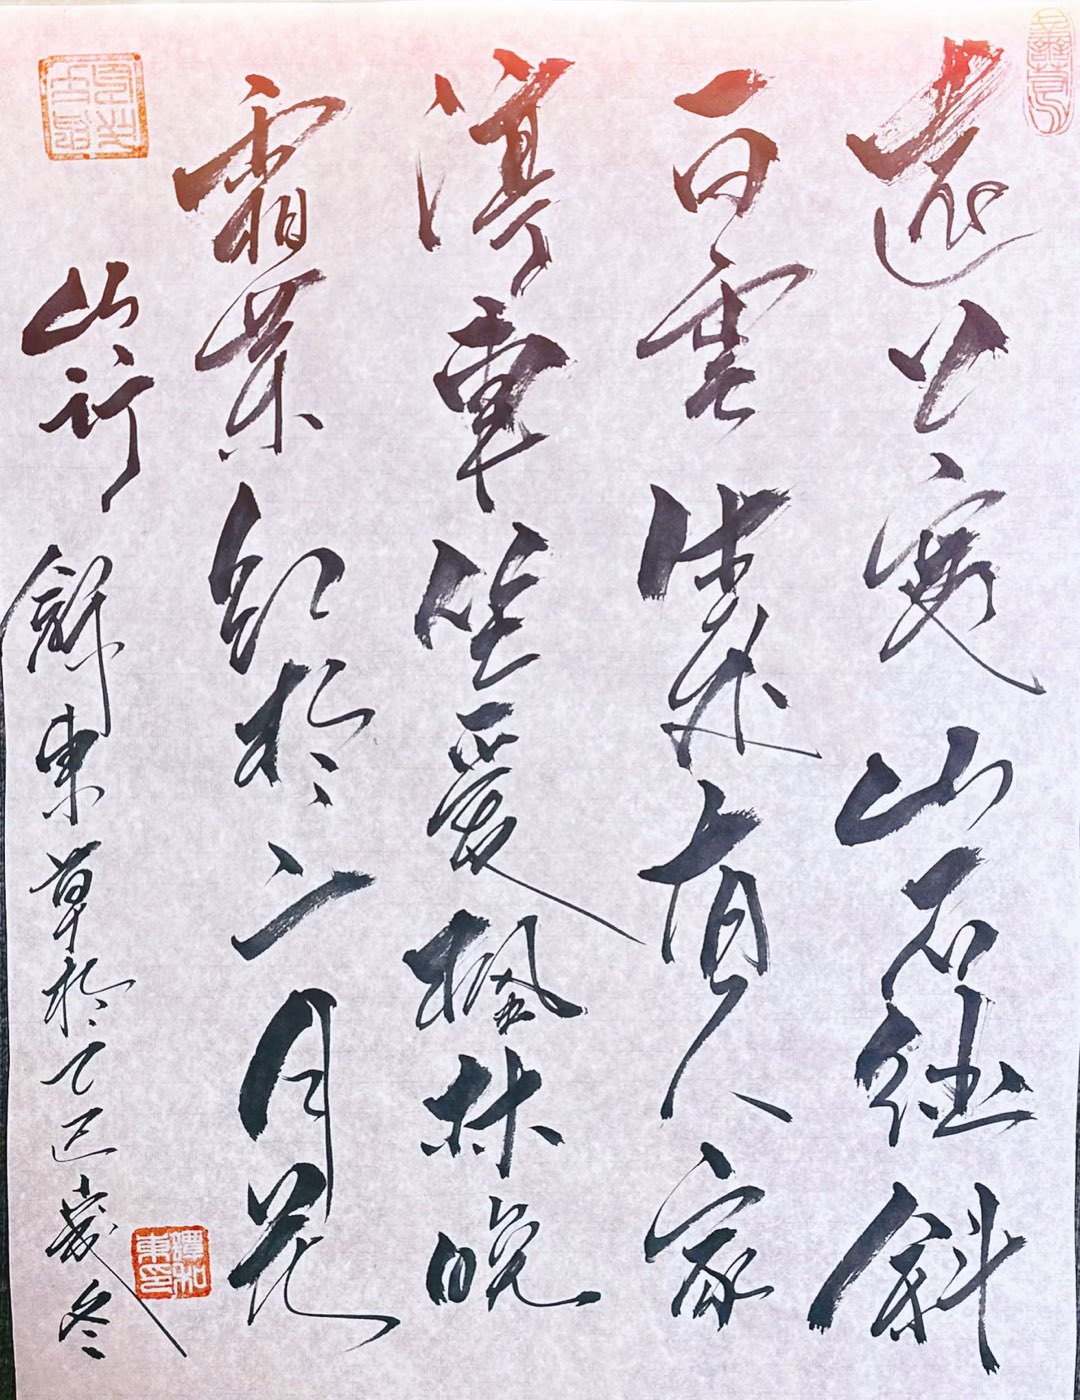 遠上寒山石徑斜
白雲生處有人家
停車坐愛楓林晚
霜葉紅於二月花
山行 龢東草於乙巳歲冬
譚和東印